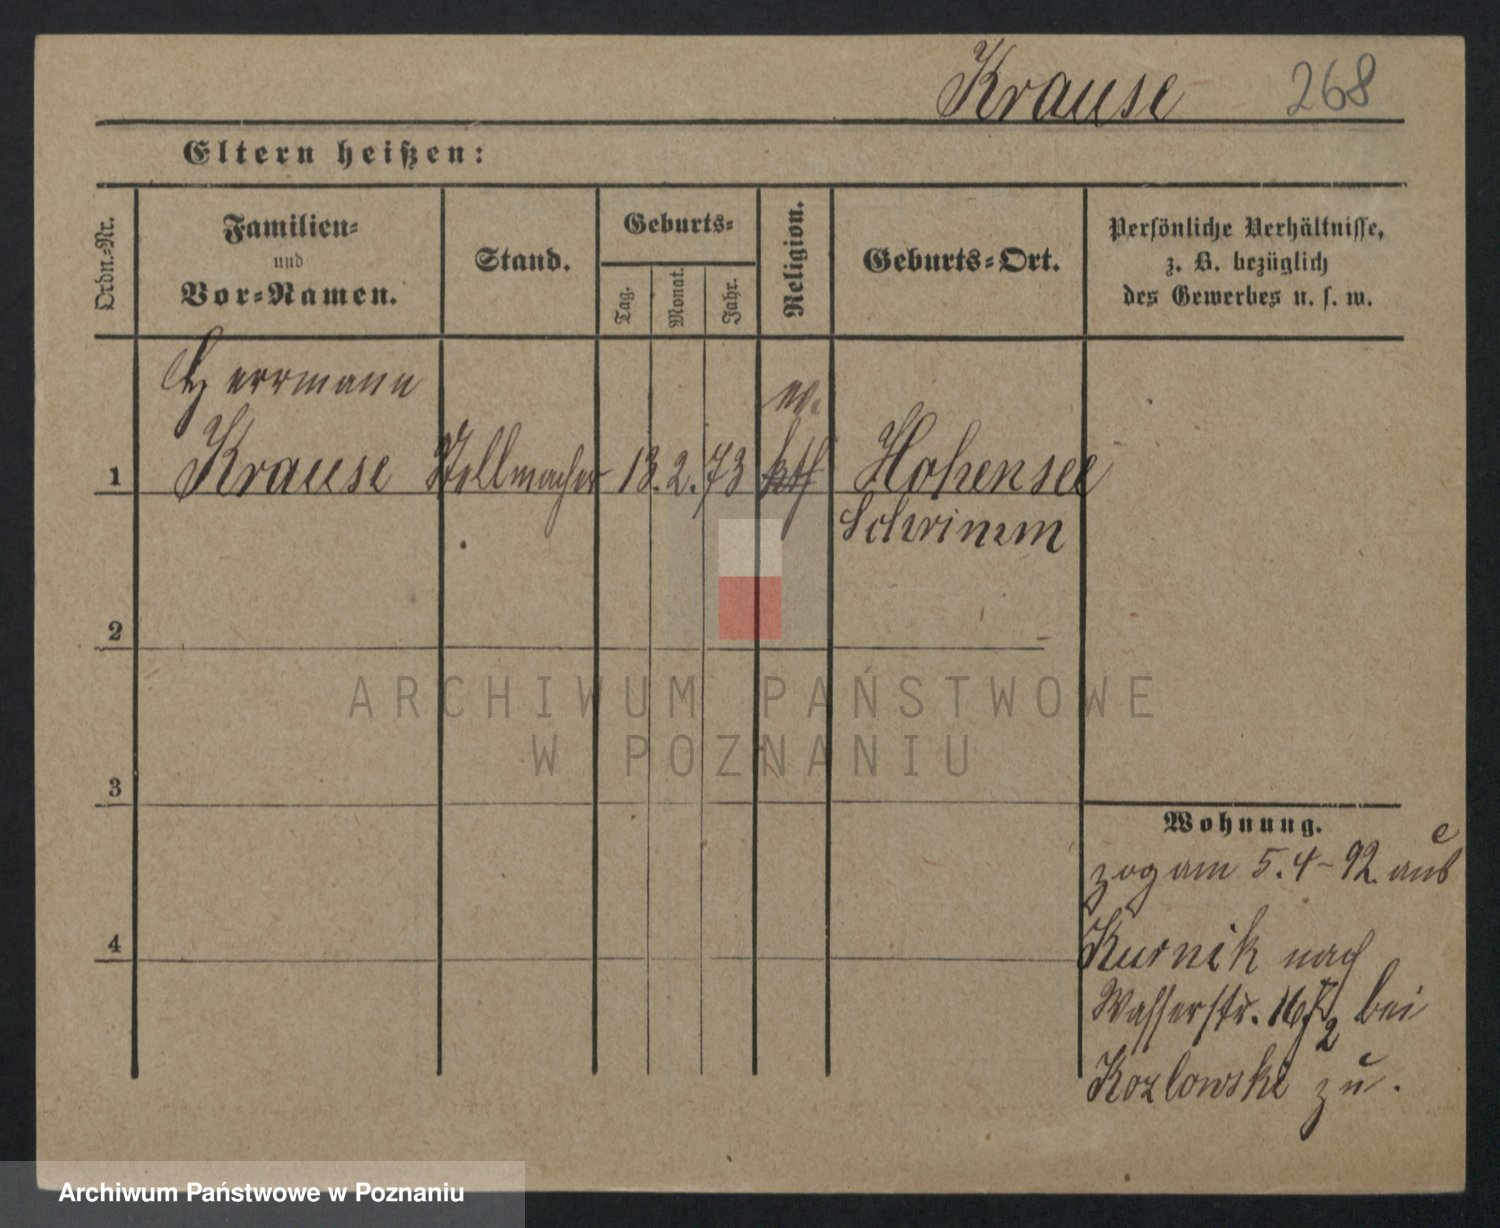 Krause 268
Eltern heißen:
Ordn.-Nr.
Familien-
und
Vor-Namen.
Stand.
Geburts-
Tag.
Monat.
Jahr.
Religion.
Geburts-Ort.
Persönliche Verhältnisse,
z. B. bezüglich
des Gewerbes u. s. w.
Herrmann
ev.
1 Krause Stellmacher 13. 2. 73 kth Hohensee
Schrimm
2
3
4
Wohnung.
zog am 5. 4 - 92. aus
Kurnik nach
Wasserstr. 16/2 bei
Kozlowski zu.
ARCHIWUM PAŃSTWOWE
W POZNANIU
Archiwum Państwowe w Poznaniu